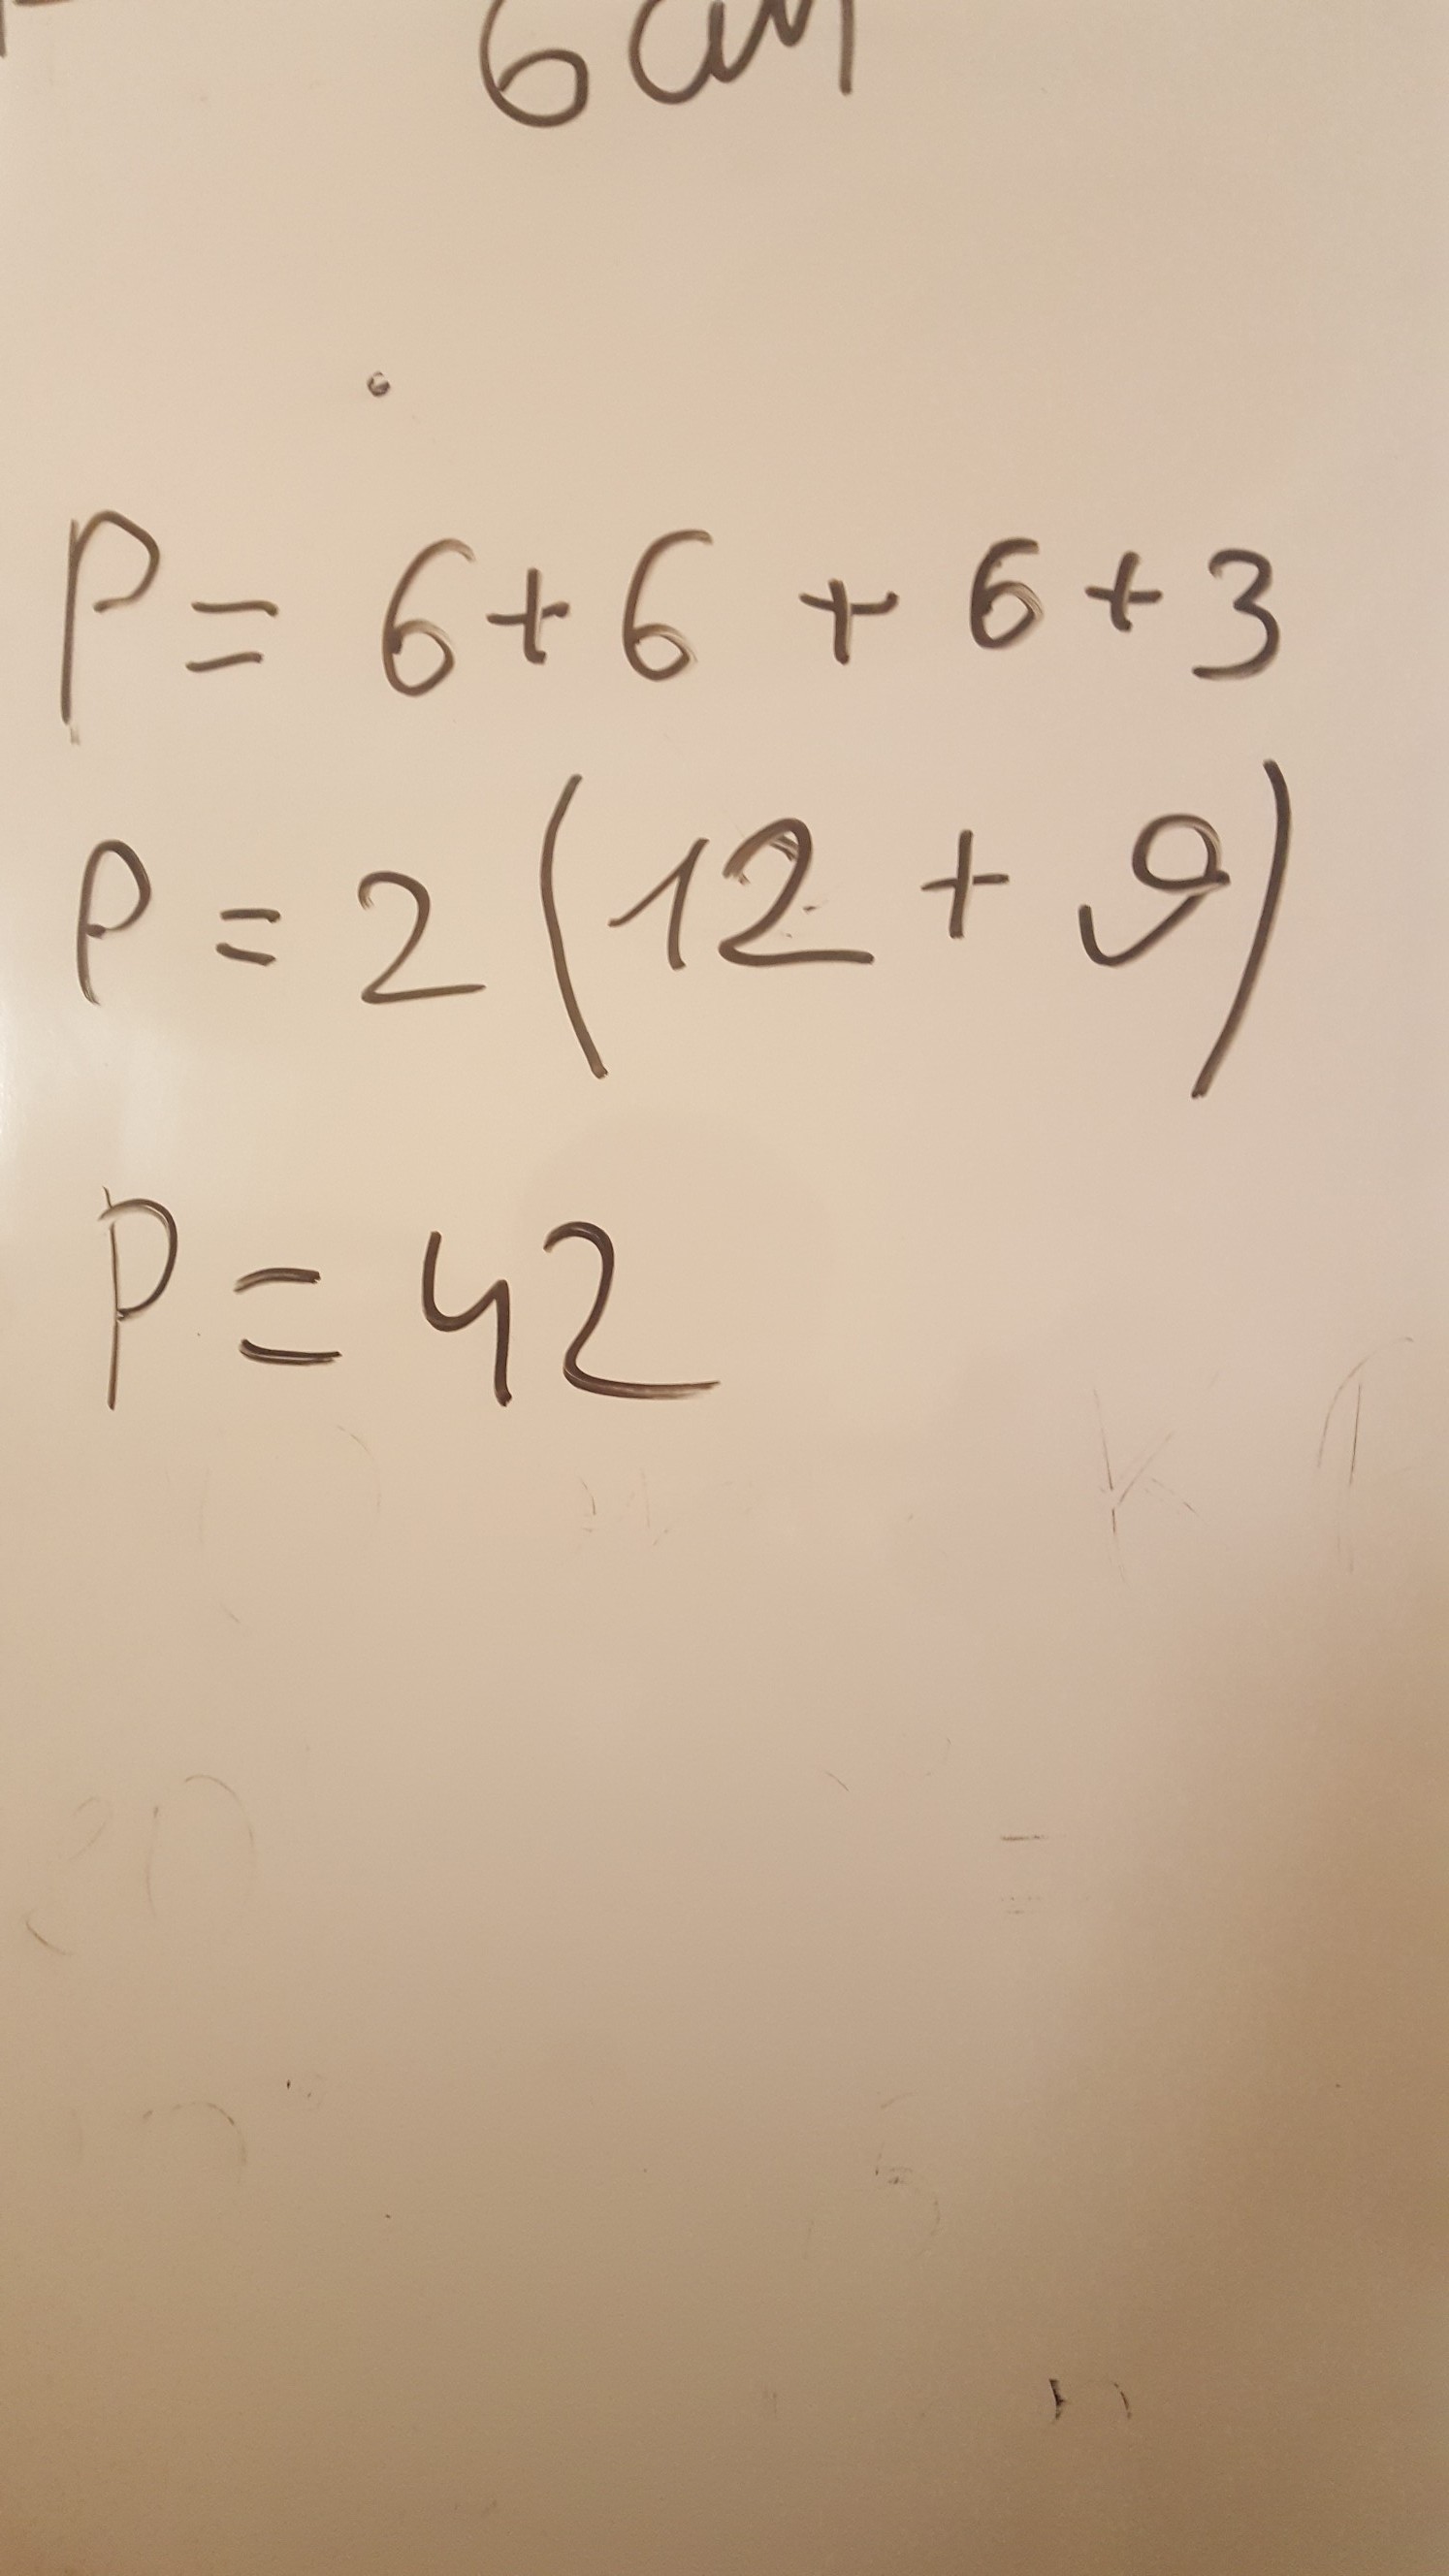 6cm
P = 6+6 + 6+3
P = 2 (12 + 9)
P = 42